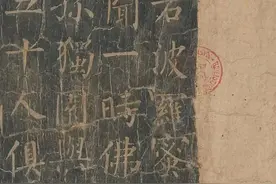 若波羅蜜
聞一時佛
孤獨園與
五十人俱